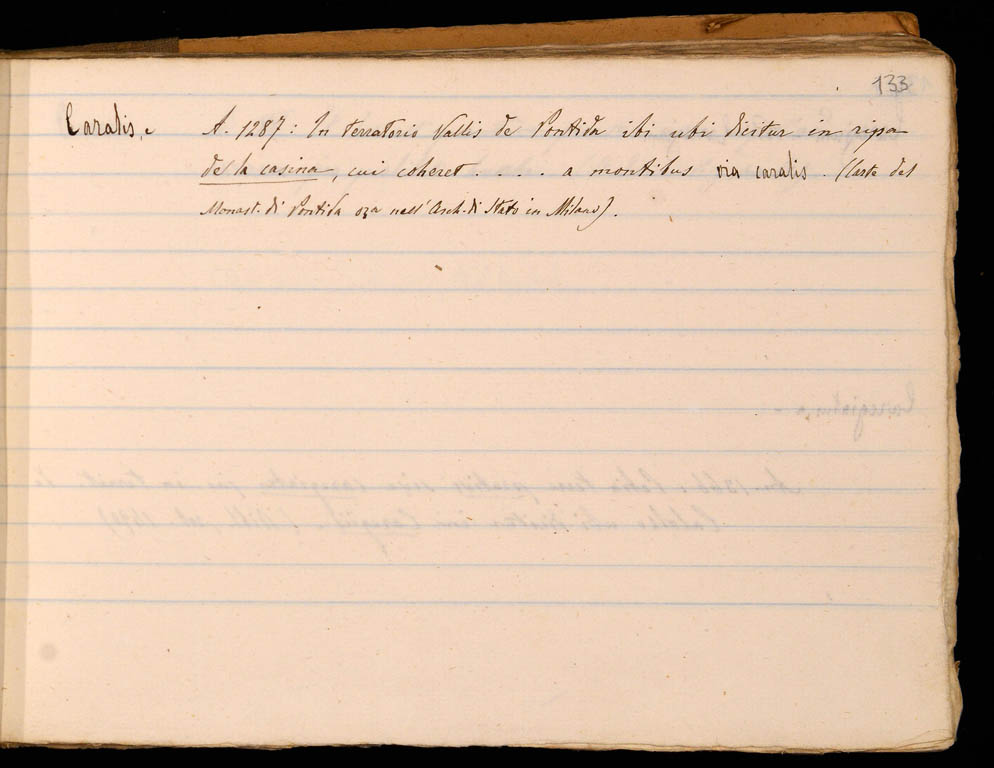 133
Caralis, e A. 1287: In terratorio Vallis de Pontida ibi ubi dicitur in ripa
de la casina, cui coheret . . . . a montibus via caralis. (Carte del
Monast. di Pontida ora nell'Arch. di Stato in Milano).